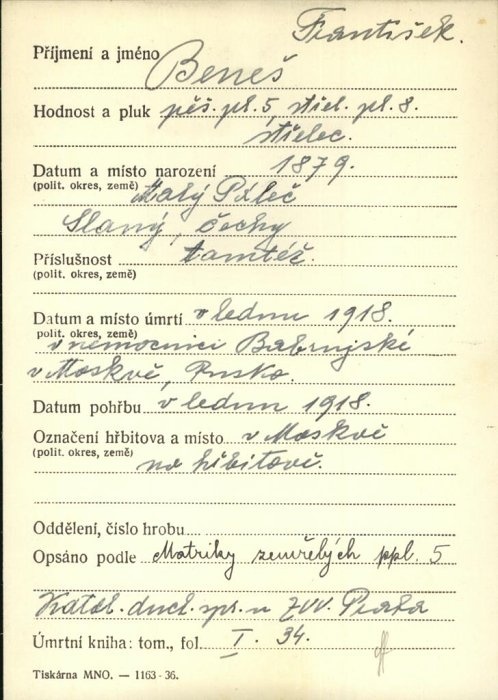 František.
Příjmení a jméno Beneš
Hodnost a pluk pěš. pl. 5, střel. pl. 8.
střelec.
Datum a místo narození 1879.
(polit. okres, země) Malý Páleč
Slaný, Čechy
Příslušnost tamtéž.
(polit. okres, země)
Datum a místo úmrtí v lednu 1918.
polit. okres, země) v nemocnici Babrujské
v Moskvě, Rusko.
Datum pohřbu v lednu 1918.
Označení hřbitova a místo v Moskvě
(polit. okres, země) na hřbitově.
Oddělení, číslo hrobu
Opsáno podle Matriky zemřelých ppl. 5
Katol. duch. spr. u ZVV. Praha
Úmrtní kniha: tom., fol. I. 34.
Tiskárna MNO. — 1163 - 36.